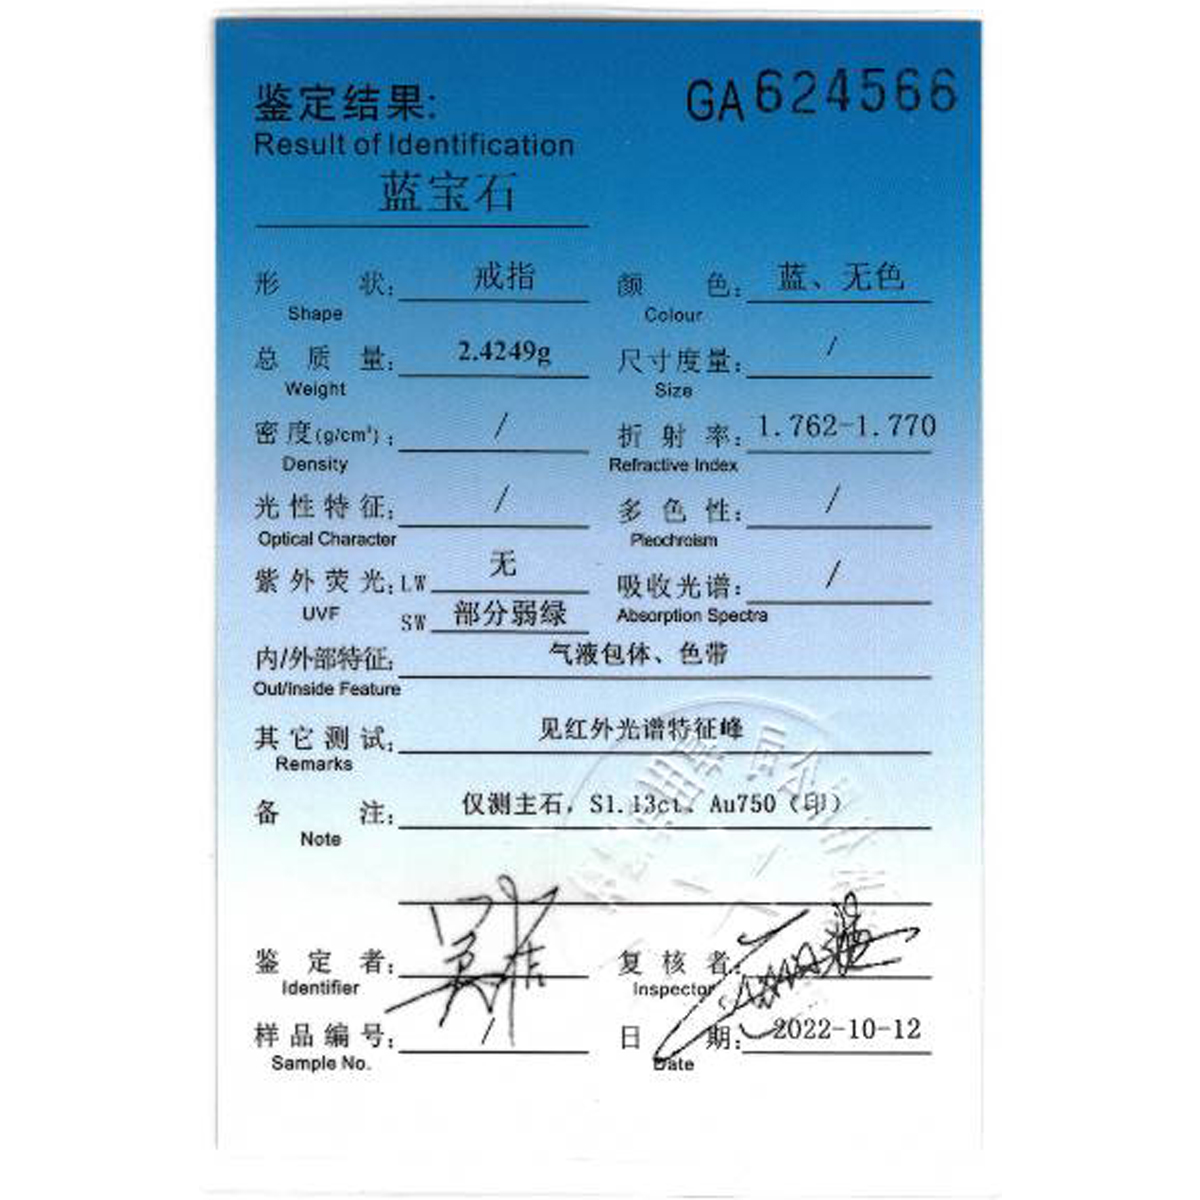 鉴定结果: GA624566
Result of Identification
蓝宝石
形 状: 戒指 颜 色: 蓝、无色
Shape Colour
总 质 量: 2.4249g 尺寸度量: /
Weight Size
密度(g/cm³): / 折 射 率: 1.762-1.770
Density Refractive Index
光性特征: / 多 色 性: /
Optical Character Pleochroism
紫外荧光: LW 无 吸收光谱: /
UVF SW 部分弱绿 Absorption Spectra
内/外部特征: 气液包体、色带
Out/Inside Feature
其它测试: 见红外光谱特征峰
Remarks
备 注: 仅测主石，S1.13ct、Au750（印）
Note
鉴 定 者: 复 核 者:
Identifier Inspector
样品编号: 日 期: 2022-10-12
Sample No. Date